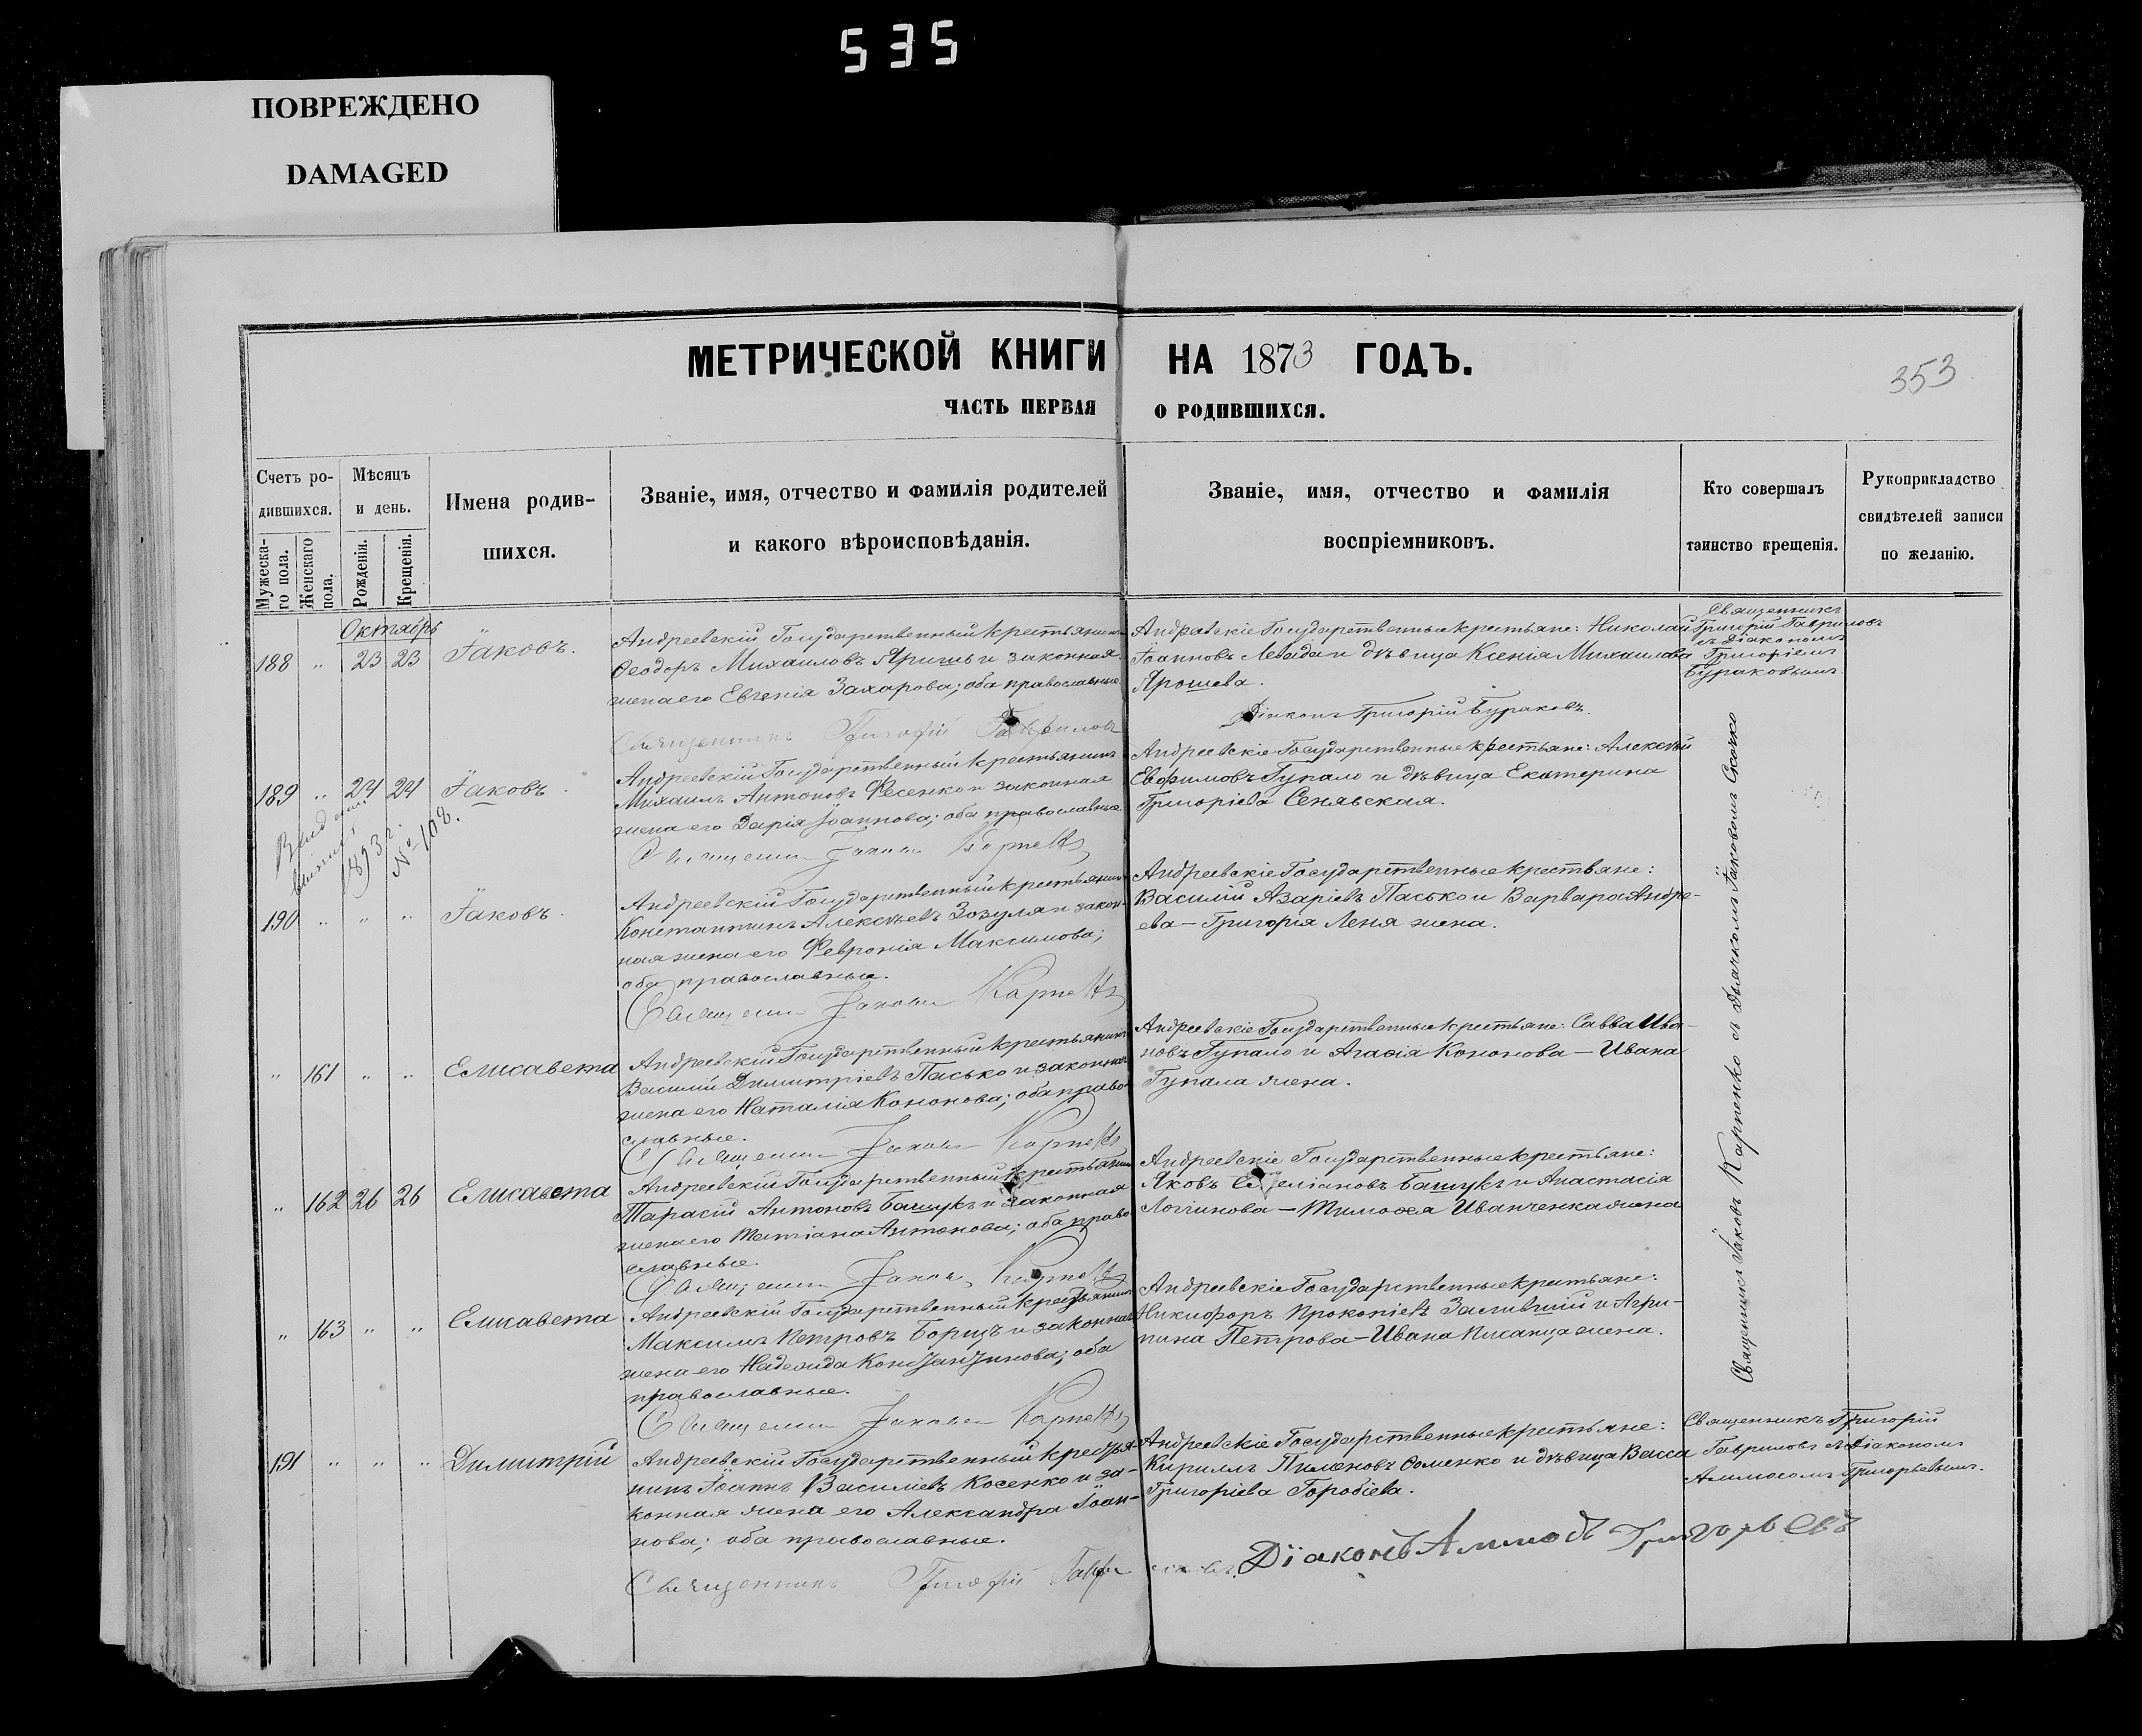 535
ПОВРЕЖДЕНО
DAMAGED
МЕТРИЧЕСКОЙ КНИГИ НА 1873 ГОДЪ.
353
ЧАСТЬ ПЕРВАЯ О РОДИВШИХСЯ.
Счетъ ро-
дившихся.
Мужеска-
го пола.
Женскаго
пола.
Мѣсяцъ
и день.
Рожденія.
Крещенія.
Имена родив-
шихся.
Званіе, имя, отчество и фамилія родителей
и какого вѣроисповѣданія.
Званіе, имя, отчество и фамилія
воспріемниковъ.
Кто совершалъ
таинство крещенія.
Рукоприкладство
свидѣтелей записи
по желанію.
Октябрь
188 " 23 23 Іаковъ.
Андреевскій Государственный крестьянинъ
Ѳеодоръ Михаиловъ Яришъ и законная
жена его Евгенія Захарова; оба православные
Священникъ Григорій Гавриловъ
Андреевскіе Государственные крестьяне: Николай
Іоанновъ Левада и дѣвица Ксенія Михаилова
Ярошева.
Діаконъ Григорій Бураковъ.
Священникъ
Григорій Гавриловъ
съ Діакономъ
Григоріемъ
Бураковымъ
189 " 24 24 Іаковъ
1893 г.
№ 108.
Андреевскій Государственный крестьянинъ
Михаилъ Антоновъ Фесенко и законная
жена его Дарія Іоаннова; оба православные
Священникъ Іаковъ Карпенко
Андреевскіе Государственные крестьяне: Алексѣй
Евфимовъ Гупало и дѣвица Екатерина
Григоріева Сенявская.
190 " " " Іаковъ
Андреевскій Государственный крестьянинъ
Константинъ Алексѣевъ Зозуля и закон-
ная жена его Февронія Максимова;
оба православные.
Священникъ Іаковъ Карпенко
Андреевскіе Государственные крестьяне:
Василій Азаріевъ Пасько и Варвара Андре-
ева — Григорія Леня жена.
Священникъ Іаковъ Карпенко съ дьячкомъ Іаковомъ
" 161 " " Елисавета
Андреевскій Государственный крестьянинъ
Василій Димитріевъ Пасько и законная
жена его Наталія Кононова; оба право-
славные.
Священникъ Іаковъ Карпенко
Андреевскіе Государственные крестьяне: Савва Ива-
новъ Гупало и Агаѳія Кононова — Ивана
Гупала жена.
" 162 26 26 Елисавета
Андреевскій Государственный крестьянинъ
Тарасій Антоновъ Башукъ и законная
жена его Татіана Антонова; оба право-
славные.
Священникъ Іаковъ Карпенко
Андреевскіе Государственные крестьяне:
Яковъ Емеліановъ Башукъ и Анастасія
Логгинова — Тимоѳея Иванченка жена
" 163 " " Елисавета
Андреевскій Государственный крестьянинъ
Максимъ Петровъ Борщъ и законная
жена его Надежда Константинова; оба
православные.
Священникъ Іаковъ Карпенко
Андреевскіе Государственные крестьяне:
Никифоръ Прокопіевъ и Агри-
пина Петрова — Ивана Писанца жена.
191 " " " Димитрій
Андреевскій Государственный крестья-
нинъ Іоаннъ Василіевъ Косенко и за-
конная жена его Александра Іоан-
нова; оба православные.
Священникъ Григорій Гавриловъ.
Андреевскіе Государственные крестьяне:
Кириллъ Пименовъ Ѳоменко и дѣвица Васса
Григоріева Горобіева.
Діаконъ Аммосъ Григорьевъ
Священникъ Григорій
Гавриловъ съ Діакономъ
Аммосомъ Григорьевымъ.